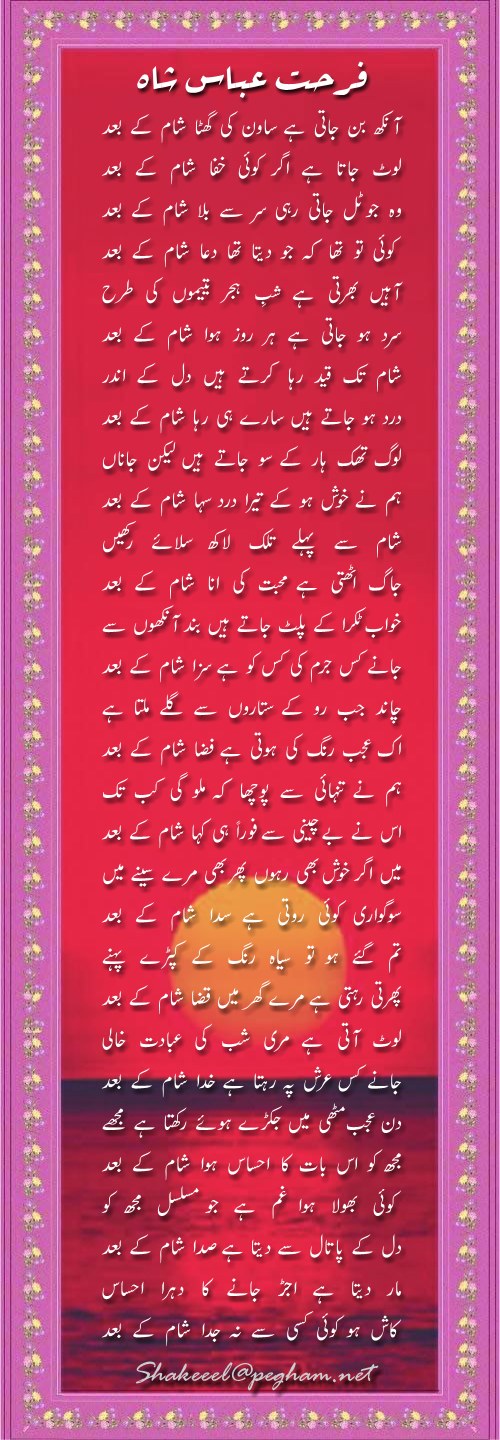 فرحت عباس شاہ
آنکھ بن جاتی ہے ساون کی گھٹا شام کے بعد
لوٹ جاتا ہے اگر کوئی خفا شام کے بعد
وہ جو ٹل جاتی رہی سر سے بلا شام کے بعد
کوئی تو تھا کہ جو دیتا تھا دعا شام کے بعد
آہیں بھرتی ہے شبِ ہجر یتیموں کی طرح
سرد ہو جاتی ہے ہر روز ہوا شام کے بعد
شام تک قید رہا کرتے ہیں دل کے اندر
درد ہو جاتے ہیں سارے ہی رہا شام کے بعد
لوگ تھک ہار کے سو جاتے ہیں لیکن جاناں
ہم نے خوش ہو کے تیرا درد سہا شام کے بعد
شام سے پہلے تلک لاکھ سلائے رکھیں
جاگ اٹھتی ہے محبت کی انا شام کے بعد
خواب ٹکرا کے پلٹ جاتے ہیں بند آنکھوں سے
جانے کس جرم کی کس کو ہے سزا شام کے بعد
چاند جب رو کے ستاروں سے گلے ملتا ہے
اک عجب رنگ کی ہوتی ہے فضا شام کے بعد
ہم نے تنہائی سے پوچھا کہ ملو گی کب تک
اس نے بے چینی سے فوراً ہی کہا شام کے بعد
میں اگر خوش بھی رہوں پھر بھی مرے سینے میں
سوگواری کوئی روتی ہے سدا شام کے بعد
تم گئے ہو تو سیاہ رنگ کے کپڑے پہنے
پھرتی رہتی ہے مرے گھر میں قضا شام کے بعد
لوٹ آتی ہے مری شب کی عبادت خالی
جانے کس عرش پہ رہتا ہے خدا شام کے بعد
دن عجب مٹھی میں جکڑے ہوئے رکھتا ہے مجھے
مجھ کو اس بات کا احساس ہوا شام کے بعد
کوئی بھولا ہوا غم ہے جو مسلسل مجھ کو
دل کے پاتال سے دیتا ہے صدا شام کے بعد
مار دیتا ہے اجڑ جانے کا دہرا احساس
کاش ہو کوئی کسی سے نہ جدا شام کے بعد
Shakeeel@pegham.net